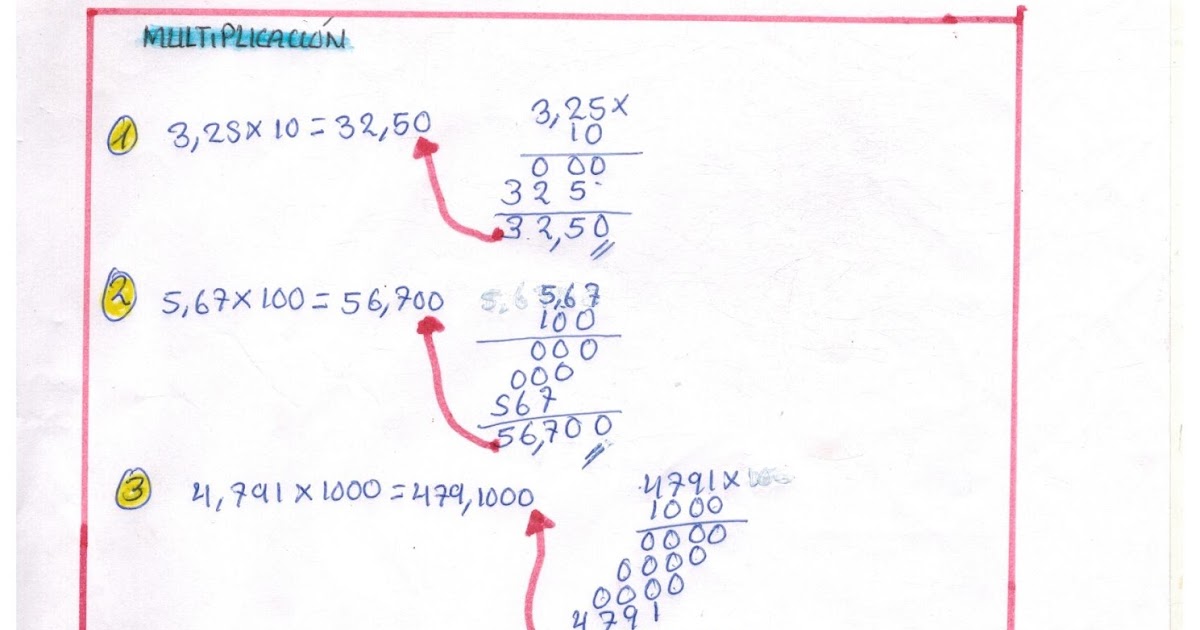 MULTIPLICACIÓN
1 3,25 x 10 = 32,50
3,25 x
10
0 00
3 2 5
32,50
2 5,67 x 100 = 56,700
5,67
100
000
000
567
56,700
3 4,791 x 1000 = 479,1000
4791 x
1000
0000
0000
0000
4791